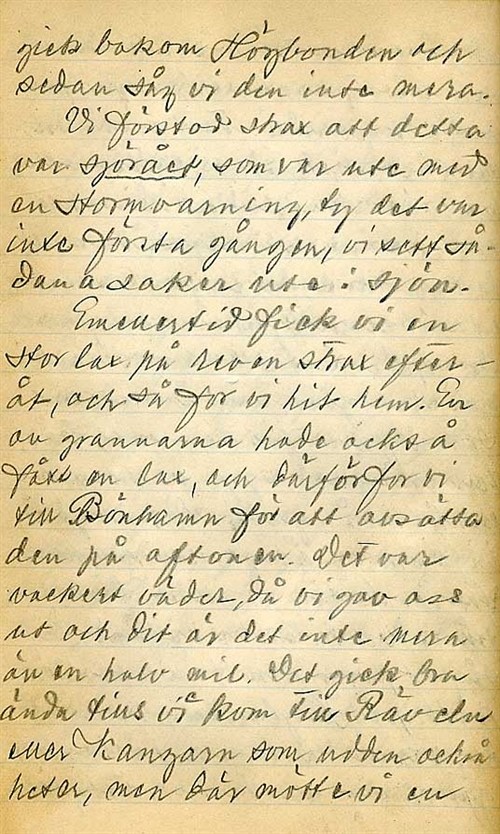 gick bakom Högbonden och
sedan såg vi den inte mera.
Vi förstod strax att detta
var sjörået, som var ute med
en stormvarning, ty det var
inte första gången, vi sett så-
dana saker ute i sjön.
Emellertid fick vi en
stor lax på reven strax efter-
åt, och så for vi hit hem. En
av grannarna hade också
fått en lax, och därför for vi
till Bönhamn för att avsätta
den på aftonen. Det var
vackert väder, då vi gav oss
ut och dit är det inte mera
än en halv mil. Det gick bra
ända tills vi kom till Räveln
eller Kanzarn som udden också
heter, men där mötte vi en